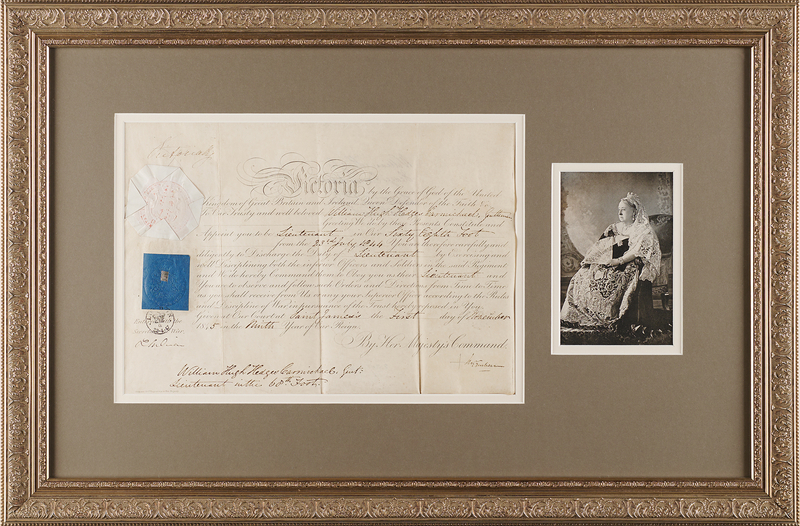 Victoria
Victoria, by the Grace of God of the United
Kingdom of Great Britain and Ireland, Queen Defender of the Faith &c
To Our Trusty and well beloved William Hugh Hedges Carmichael, Gentleman
Greeting We do by these Presents Constitute and
Appoint you to be Lieutenant in Our Sixty Eighth Foot
from the 23rd July 1844 You are therefore carefully and
diligently to Discharge the Duty of Lieutenant by Exercising and
well Disciplining both the Officers and Soldiers of that Regiment
and We do hereby Command them to Obey you as their Lieutenant and
You are to observe and follow such Orders and Directions from Time to Time
as you shall receive from Us or any your Superior Officer according to the Rules
and Discipline of War in pursuance of the Trust hereby reposed in You
Given at Our Court at Saint James's the First day of November
1845 in the Ninth Year of Our Reign
By Her Majesty's Command
William Hugh Hedges Carmichael, Gent:
Lieutenant in the 68th Foot